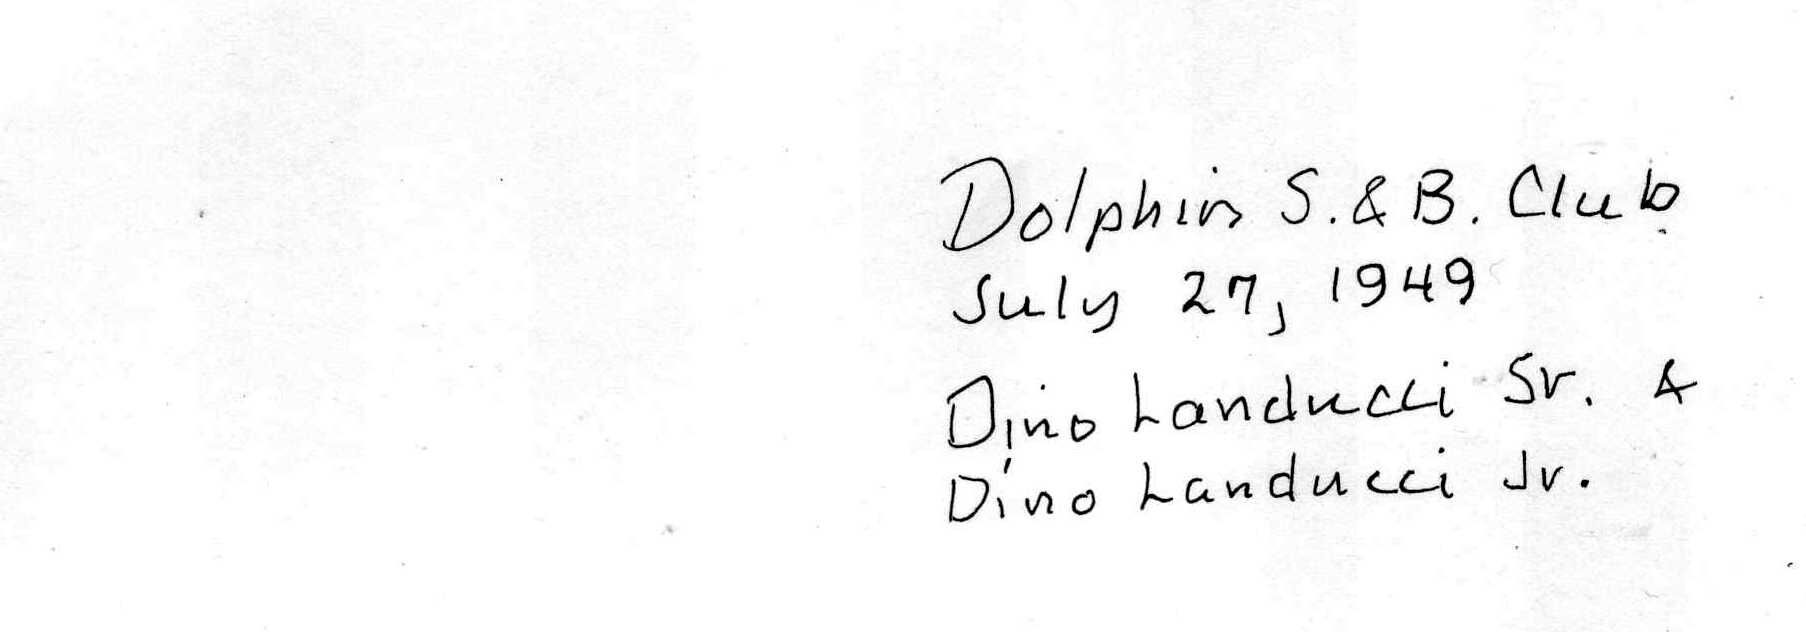 Dolphin S. & B. Club
July 27, 1949
Dino Landucci Sr. &
Dino Landucci Jr.